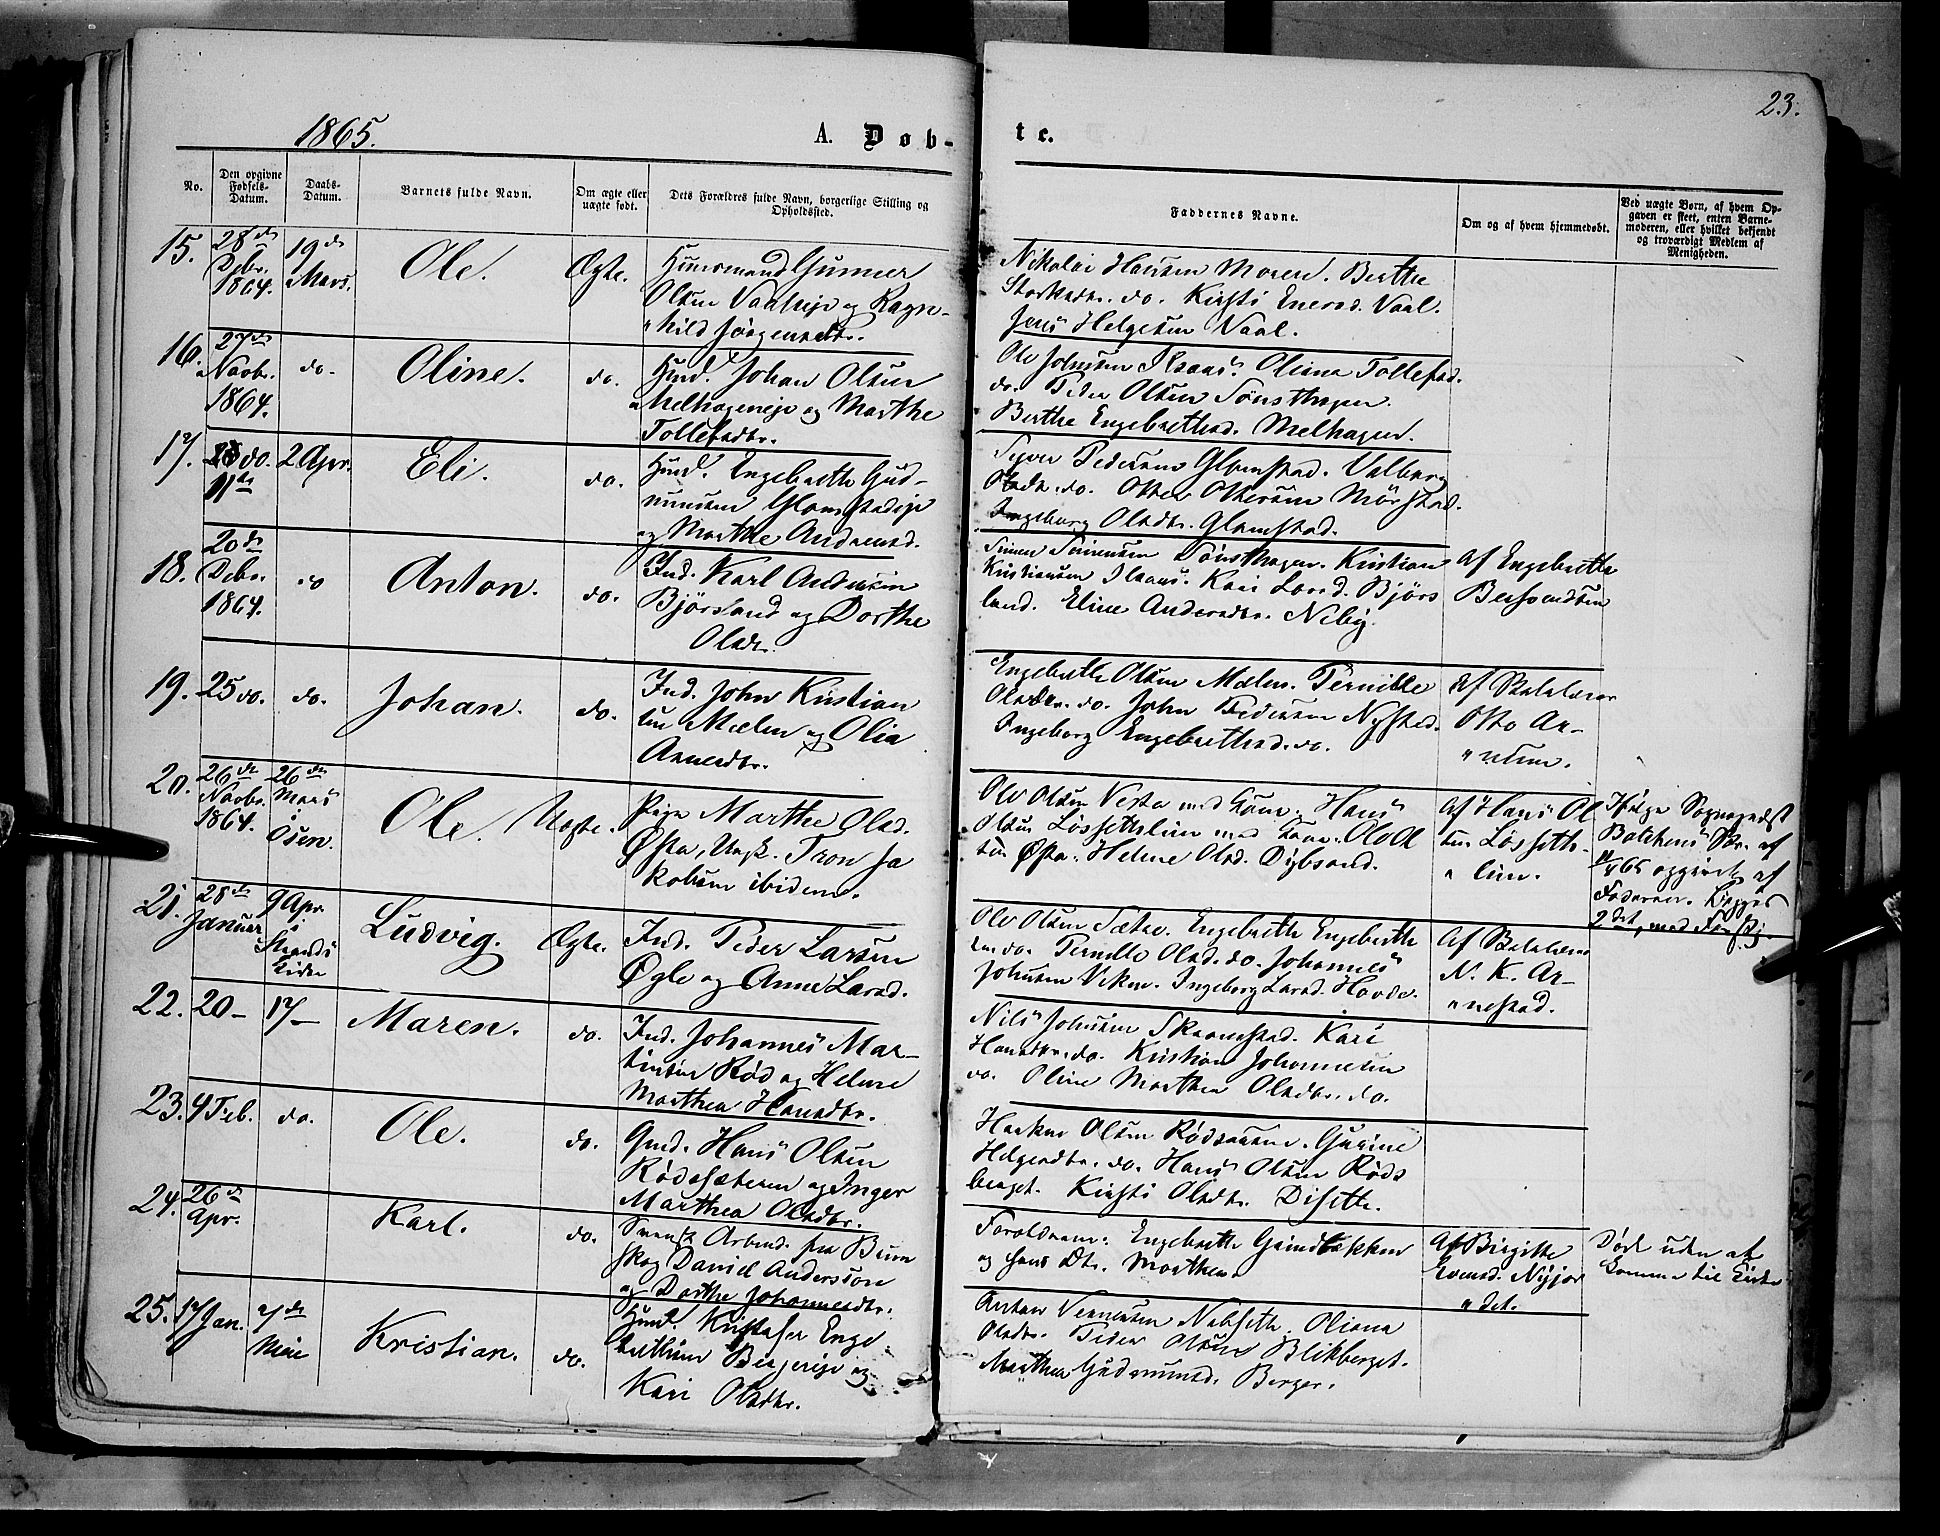 23.
1865.
A. Døb-
te.
No.
Den opgivne Fødsels-Datum.
Daabs-Datum.
Barnets fulde Navn.
Om ægte eller uægte født.
Dets Forældres fulde Navn, borgerlige Stilling og Opholdssted.
Faddernes Navne.
Om og af hvem hjemmedøbt.
Ved uægte Børn, af hvem Op-
gaven er skeet, enten Barne-
moderen, eller hvilket bekjendt
og troværdigt Medlem af
Menigheden.
15. 28de Debr. 1864. 19de Mars. Ole. Ægte.
Huusmand Gunner
Olsen og Ragn-
hild Jørgensdtr.
Nikolai Hansen Moren. Berthe
do. Kirsti Enersd. Vaal.
Jens Helgesen Vaal.
16. 27de Novbr. 1864. do. Oline. do.
Husd. Johan Olsen
Melhageneje og Marthe
Tollefsdtr.
Ole Johnsen Oliana Tollefsd.
do. Peder Olsen Sønsthagen.
Berthe Engebrethsd. Melhagen.
17. do. 11te 2 Apr. Eli. do.
Husd. Engebreth Gud-
mundsen Glomstadeje
og Marthe Andersd.
Syver Pedersen Glomstad. Valborg
Olsdtr. do. Otter Ottersen Mørstad.
Ingeborg Olsdtr. Glomstad.
18. 20de Debr. 1864. do Anton. do.
Ind. Karl Andersen
Bjørsland og Dorthe
Olsdtr.
Simen Simensen Sønsthagen. Kristian
Kristiansen Kari Larsd. Bjørs
land. Eline Andersdtr. Neby.
Af Engebreth
19. 25 do. do. Johan. do.
Ind. John Kristian
sen Mælen og Olia
Arnesdtr.
Engebreth Olsen Mælen. Pernille
Olsdtr. do. John Pedersen Nysted.
Ingeborg Engebrethsd. do.
Af Skolelærer
Otto Ar-
"ntsen.
20. 26de Novbr. 1864. 26de Mars i Osen. Ole. Uægte.
Pige Marthe Olsd.
Østa, Ungk. Tron Ja
kobsen ibidem.
Ole Olsen Vesta med Kone. Hans
Olsen Løssethlien med Kone. Ole Ol
sen Østa. Helene Olsd. Dybsand.
Af Hans Ol
sen Løsseth-
"lien.
Ifølge Sognepræst
af
65 opgivet af
Faderen. Begges
2det, med
21. 28de Januar 9 Apr. i Strands Kirke Ludvig. Ægte.
Ind. Peder Larsen
Øgle og Anne Larsd.
Ole Olsen Sætre. Engebreth Engebreth
sen do. Pernille Olsd. do. Johannes
Johnsen Viken. Ingeborg Larsd. Hovde.
Af Skolelærer
N. K. Ar-
"nestad.
22. 20- 17- Maren. do.
Ind. Johannes Mar-
tinsen Rød og Helene
Marthea Hansdtr.
Nils Johnsen Skramstad. Kari
Hansdtr. do. Kristian Johannesen
do. Oline Marthea Olsdtr. do.
23. 4 Feb. do. Ole. do.
Gmd. Hans Olsen
Rødssæteren og Inger
Marthea Olsdtr.
Haaken Olsen Gurine
Helgesdtr. do. Hans Olsen Røds
berget. Kirsti Olsdtr. Diseth.
24. 26de Apr. Karl. do.
Svensk Arbeid. fra Bium
skog Daniel Andersson
og Dorthe Johannesdtr.
Forældrene. Engebreth Grindbakken
og hans Dtr. Marthea
Af Birgitte
Evensd. Nyjor
"det.
Død uden at
komme til Kirke
25. 17 Jan. 7de Mai Kristian. do.
Husd. Kristofer Enge
brethsen Bergereje og
Kari Olsdtr.
Anton Nabseth. Oliana
Olsdtr. Peder Olsen Blikberget.
Marthea Gudmundsd. Berger.